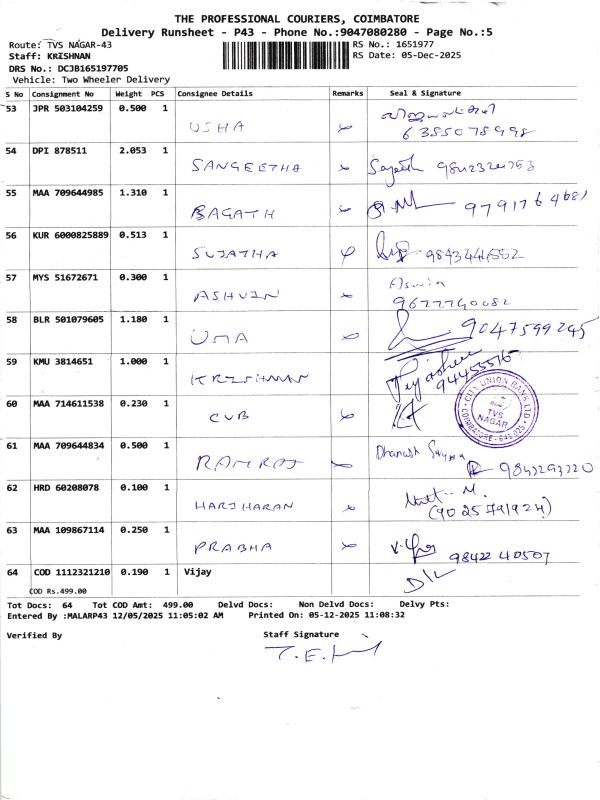 THE PROFESSIONAL COURIERS, COIMBATORE
Delivery Runsheet - P43 - Phone No.:9047080280 - Page No.:5
Route: TVS NAGAR-43 RS No.: 1651977
Staff: KRISHNAN RS Date: 05-Dec-2025
DRS No.: DCJB165197705
Vehicle: Two Wheeler Delivery
S No Consignment No Weight PCS Consignee Details Remarks Seal & Signature
53 JPR 503104259 0.500 1 USHA
6385078998
54 DPI 878511 2.053 1 SANGEETHA
55 MAA 709644985 1.310 1 BAGATH 9791764681
56 KUR 6000825889 0.513 1 SUJATHA
57 MYS 51672671 0.300 1 ASHVIN Aswin
9677740082
58 BLR 501079605 1.180 1 UMA 9047599245
59 KMU 3814651 1.000 1 KRISHNAN
60 MAA 714611538 0.230 1 CUB
CITY UNION BANK LTD.
TVS
NAGAR
COIMBATORE - 641 025
61 MAA 709644834 0.500 1 RAMRAJ Dhanush 9843293220
62 HRD 60208078 0.100 1 HARIHARAN
(9025791924)
63 MAA 109867114 0.250 1 PRABHA 9842240507
64 COD 1112321210 0.190 1 Vijay D/L
COD Rs.499.00
Tot Docs: 64 Tot COD Amt: 499.00 Delvd Docs: Non Delvd Docs: Delvy Pts:
Entered By :MALARP43 12/05/2025 11:05:02 AM Printed On: 05-12-2025 11:08:32
Verified By Staff Signature